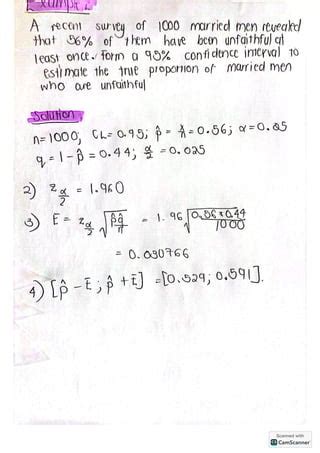 Example 2
A recent survey of 1000 married men revealed
that 56% of them have been unfaithful at
least once. Form a 95% confidence interval to
estimate the true proportion of married men
who are unfaithful
Solution
n=1000, CL=0.95; p̂ = x/n = 0.56; α=0.05
q = 1-p̂ = 0.44; α/2 = 0.025
2) z α/2 = 1.960
3) E = z α/2 √(p̂q̂/n) = 1.96 √(0.56×0.44/1000)
= 0.030766
4) [p̂ - E ; p̂ + E] = [0.529; 0.591].
Scanned with
CS CamScanner